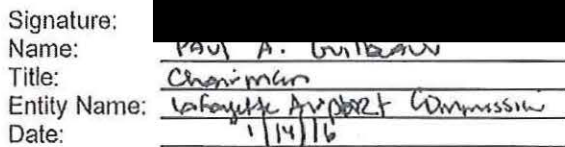 Signature:
Name: Paul A. Guilbeau
Title: Chairman
Entity Name: Lafayette Airport Commission
Date: 1/14/16